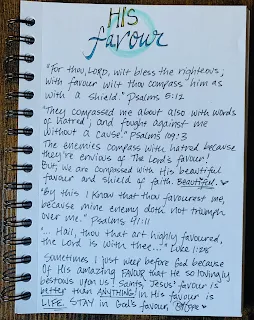 HIS
favour
"For thou, LORD, wilt bless the righteous;
with favour wilt thou compass him as
with a shield." Psalms 5:12
"They compassed me about also with words
of hatred; and fought against me
without a cause." Psalms 109:3
The enemies compass with hatred because
they're envious of The Lord's favour!
But, we are compassed with His beautiful
favour and shield of faith. Beautiful.
"By this I know that thou favourest me,
because mine enemy doth not triumph
over me." Psalms 41:11
"... Hail, thou that art highly favoured,
the Lord is with thee..." Luke 1:28
Sometimes I just weep before God because
of His amazing FAVOUR that He so lovingly
bestows upon us! Saints, Jesus' favour is
better than ANYTHING! In His favour is
LIFE. STAY in God's favour,